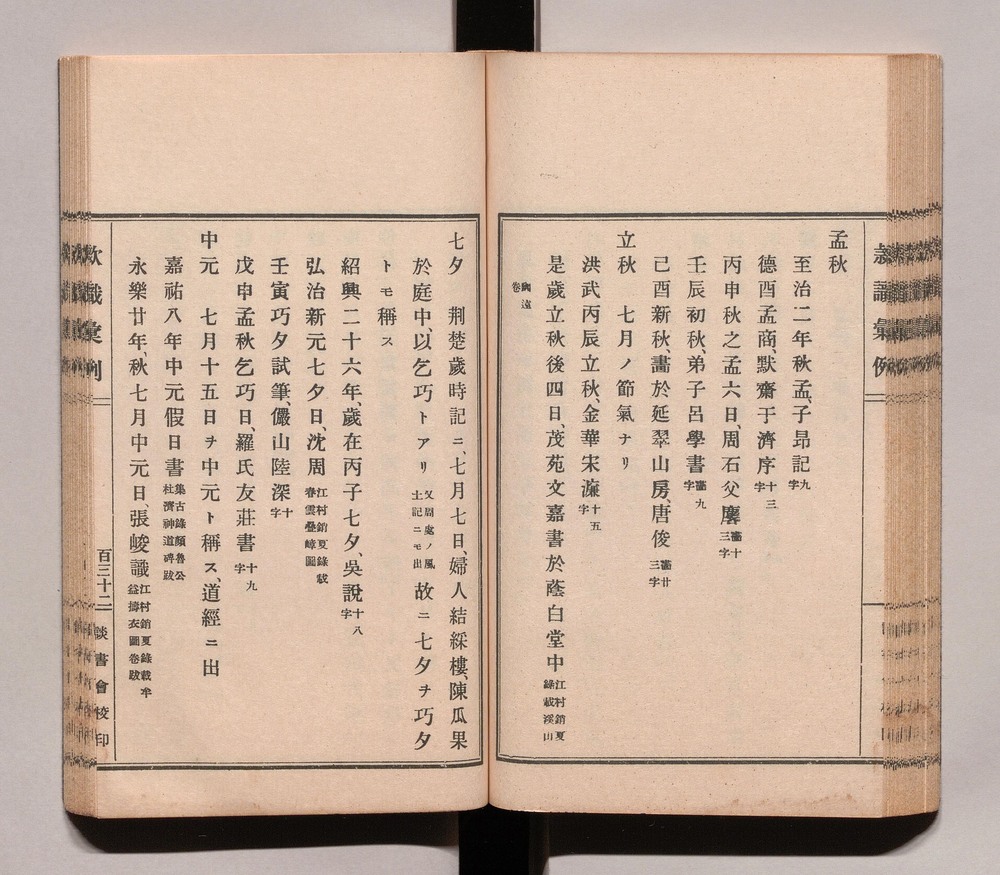 孟秋
至治二年秋孟、子昂記九字
德酉孟商、默齋于濟序十三字
丙申秋之孟六日、周石父
壬辰初秋、弟子呂學書
己酉新秋、畵於延翠山房、唐俊
立秋　七月ノ節氣ナリ
洪武丙辰立秋、金華宋濂十五字
是歲立秋後四日、茂苑文嘉書於蔭白堂中江村銷夏錄載溪山
卷
七夕　荆楚歲時記ニ、七月七日、婦人結綵樓、陳瓜果
於庭中、以乞巧トアリ又周處ノ風土記ニモ出故ニ七夕ヲ巧夕
トモ稱ス
紹興二十六年、歲在丙子七夕、吳說十八字
弘治新元七夕日、沈周江村銷夏錄載春雲疊嶂圖
壬寅巧夕試筆、儼山陸深十字
戊申孟秋乞巧日、羅氏友莊書十九字
中元　七月十五日ヲ中元ト稱ス、道經ニ出
嘉祐八年中元假日書集古錄顏魯公杜濟神道碑跋
永樂廿年、秋七月中元日、張峻識江村銷夏錄載牟益擣衣圖卷跋
款識彙例
百三十二
談書會
印